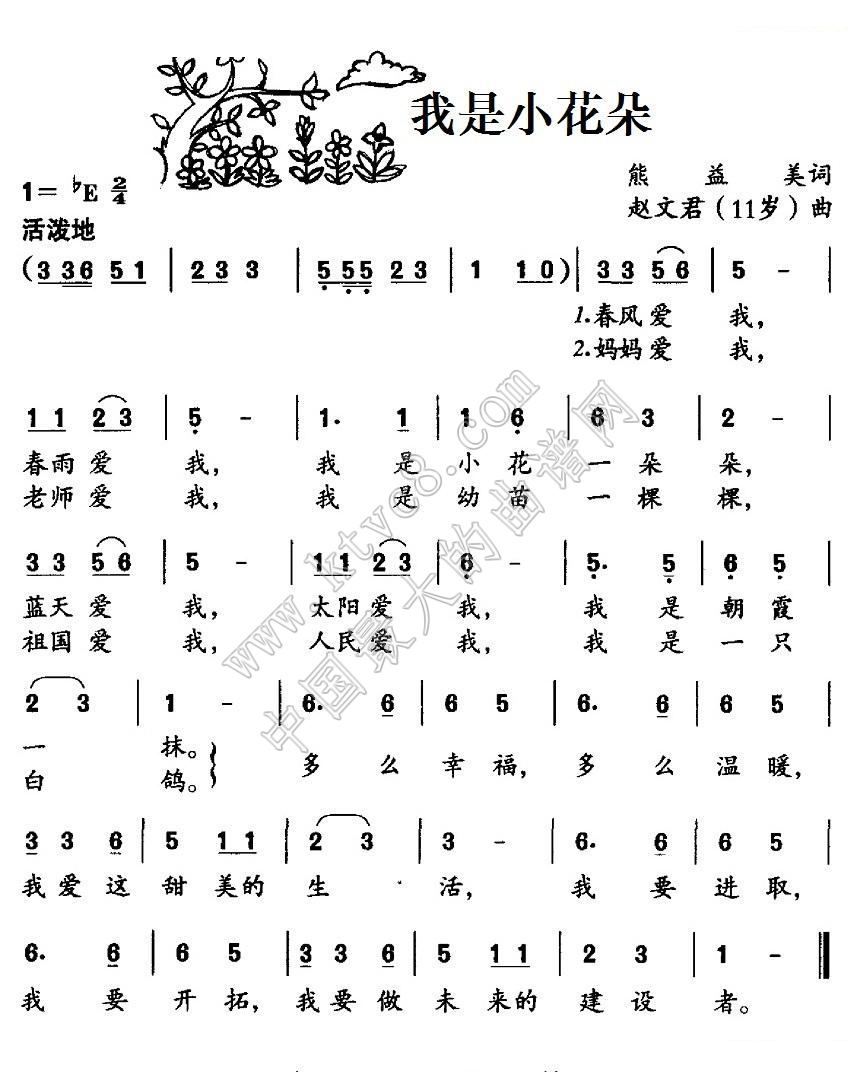 我是小花朵
熊益美词
1=♭E 2/4
赵文君（11岁）曲
活泼地
(3 36 5 1 | 2 3 3 | 5 55 2 3 | 1 1 0) | 3 3 5 6 | 5 - |
1.春风爱 我，
2.妈妈爱 我，
1 1 2 3 | 5 - | 1. 1 | 1 6 | 6 3 | 2 - |
春雨爱 我， 我 是 小 花 一 朵 朵，
老师爱 我， 我 是 幼 苗 一 棵 棵，
3 3 5 6 | 5 - | 1 1 2 3 | 6 - | 5. 5 | 6 5 |
蓝天爱 我， 太阳爱 我， 我 是 朝 霞
祖国爱 我， 人民爱 我， 我 是 一 只
2 3 | 1 - | 6. 6 | 6 5 | 6. 6 | 6 5 |
一 抹。 多 么 幸 福， 多 么 温 暖，
白 鸽。
3 3 6 | 5 1 1 | 2 3 | 3 - | 6. 6 | 6 5 |
我 爱 这 甜 美的 生 活， 我 要 进 取，
6. 6 | 6 5 | 3 3 6 | 5 1 1 | 2 3 | 1 - ‖
我 要 开 拓， 我 要 做 未 来的 建 设 者。
www.ktyc8.com
中国最大的曲谱网